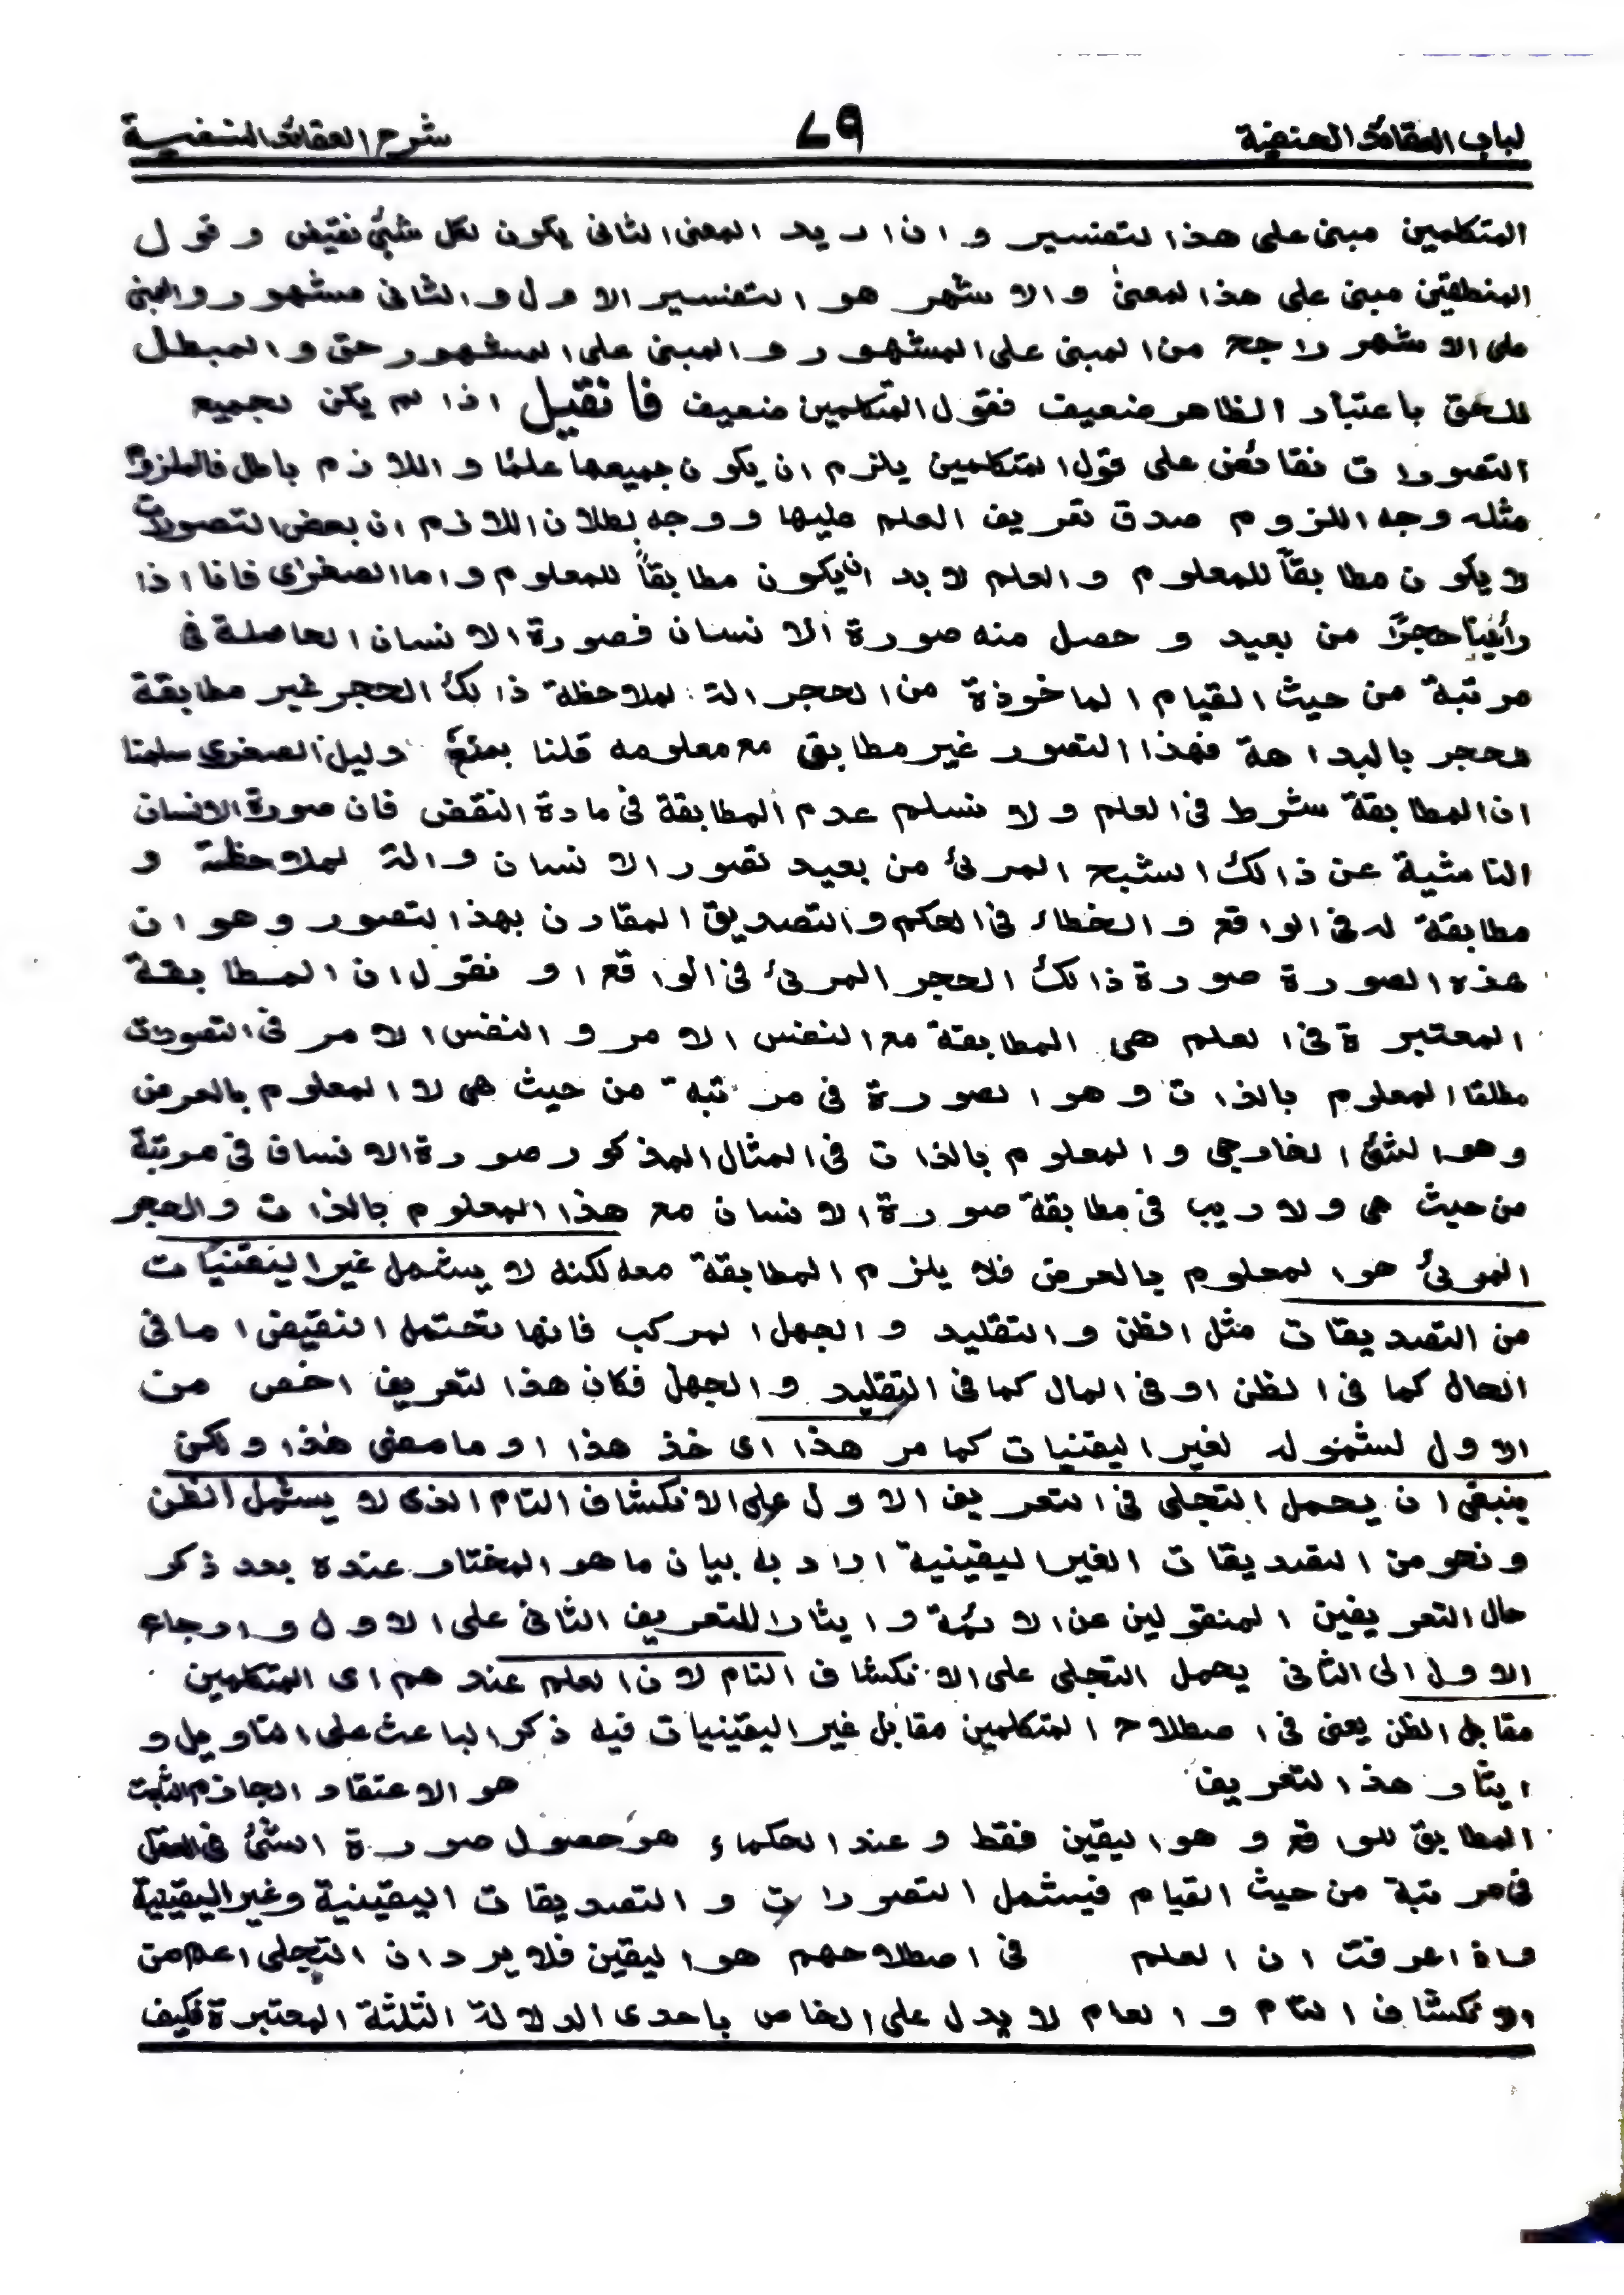 لباب العقائد الحنفية ٧٩ شرح العقائد النسفية
المتكلمين مبنى على هذا التفسير و ان اريد المعنى الثانى يكون لكل شئ نقيض و قول
المنطقين مبنى على هذا المعنىٰ و الاشهر هو التفسير الاول و الثانى مشهور والمبنى
على الاشهر راجح من المبنى على المشهور و المبنى على المشهور حق و المبطل
للحق باعتبار الظاهر ضعيف فقول المتكلمين ضعيف فانقيل اذا لم يكن لجميع
التصورات نقائض على قول المتكلمين يلزم ان يكون جميعها علمًا و اللازم باطل فالملزوم
مثله وجه اللزوم صدق تعريف العلم عليها و وجه بطلان اللازم ان بعض التصورات
لا يكون مطابقاً للمعلوم و العلم لا بد ان يكون مطابقاً للمعلوم و اما الصغرٰى فانا اذا
رأينا حجرًا من بعيد و حصل منه صورة الانسان فصورة الانسان الحاصلة فى
مرتبة من حيث القيام الماخوذة من الحجر الة لملاحظة ذالك الحجر غير مطابقة
لحجر بالبداهة فهذا التصور غير مطابق مع معلومه قلنا بمنع دليل الصغرى سلمنا
ان المطابقة شرط فى العلم و لا نسلم عدم المطابقة فى مادة النقض فان صورة الانسان
الناشئية عن ذالك الشبح المرئ من بعيد تصور الانسان و الة لملاحظة و
مطابقة له فى الواقع و الخطاء فى الحكم و التصديق المقارن بهذا التصور و هو ان
هذه الصورة صورة ذالك الحجر المرئ فى الواقع او نقول ان المطابقة
المعتبرة فى العلم هى المطابقة مع النفس الامر و النفس الامر فى التصورات
مطلقا المعلوم بالذات و هو الصورة فى مرتبة من حيث هى لا المعلوم بالعرض
و هو الشئ الخارجى و المعلوم بالذات فى المثال المذكور صورة الانسان فى مرتبة
من حيث هى و لا ريب فى مطابقة صورة الانسان مع هذا المعلوم بالذات و الحجر
المرئ هو المعلوم بالعرض فلا يلزم المطابقة معه لكنه لا يشمل غير اليقنيات
من التصديقات مثل الظن و التقليد و الجهل المركب فانها تحتمل النقيض اما فى
الحال كما فى الظن او فى المال كما فى التقليد و الجهل فكان هذا التعريف اخص من
الاول لشموله لغير اليقنيات كما مر هذا اى خذ هذا او ما معنى هٰذا و لكن
ينبغى ان يحمل التجلى فى التعريف الاول على الانكشاف التام الذى لا يشمل الظن
و نحو من التصديقات الغير اليقينية اراد به بيان ما هو المختار عنده بعد ذكر
حال التعريفين المنقولين عن الائمة و ايثارا للتعريف الثانى على الاول و ارجاع
الاول الى الثانى يحمل التجلى على الانكشاف التام لان العلم عندهم اى المتكلمين
مقابل الظن يعنى فى اصطلاح المتكلمين مقابل غير اليقينيات فيه ذكر الباعث على التاويل و
ايثار هذا التعريف هو الاعتقاد الجازم الثابت
المطابق للواقع و هو اليقين فقط و عند الحكماء هو حصول صورة الشئ فى العقل
فى مرتبة من حيث القيام فيشمل التصورات و التصديقات اليقينية و غير اليقينية
فاذا عرفت ان العلم فى اصطلاحهم هو اليقين فلا يرد ان التجلى اعم من
الانكشاف التام و العام لا يدل على الخاص باحدى الدلالة الثلثة المعتبرة فكيف